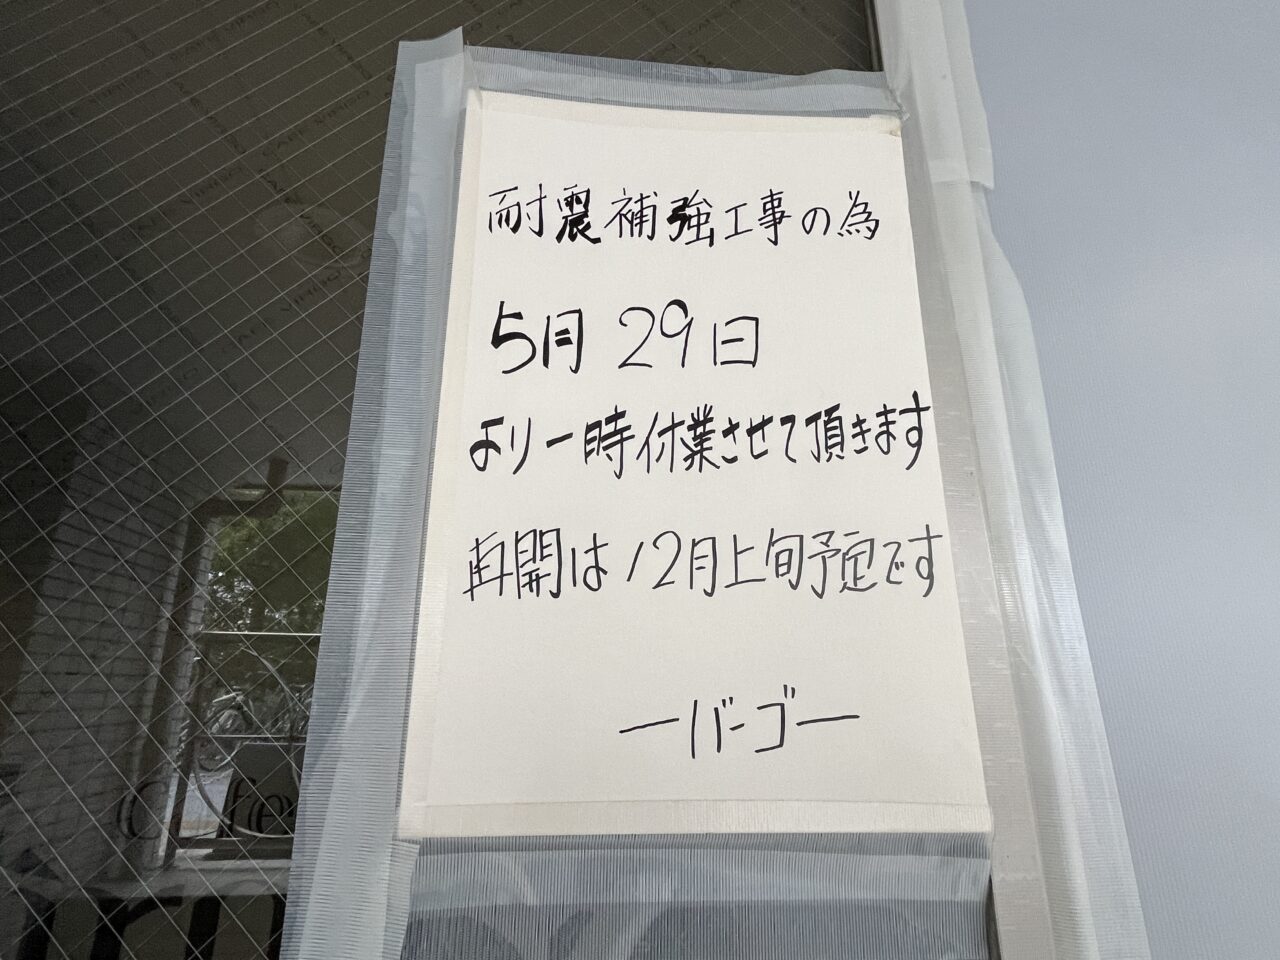 耐震補強工事の為
5月29日
より一時休業させて頂きます
再開は12月上旬予定です
ーバーゴー